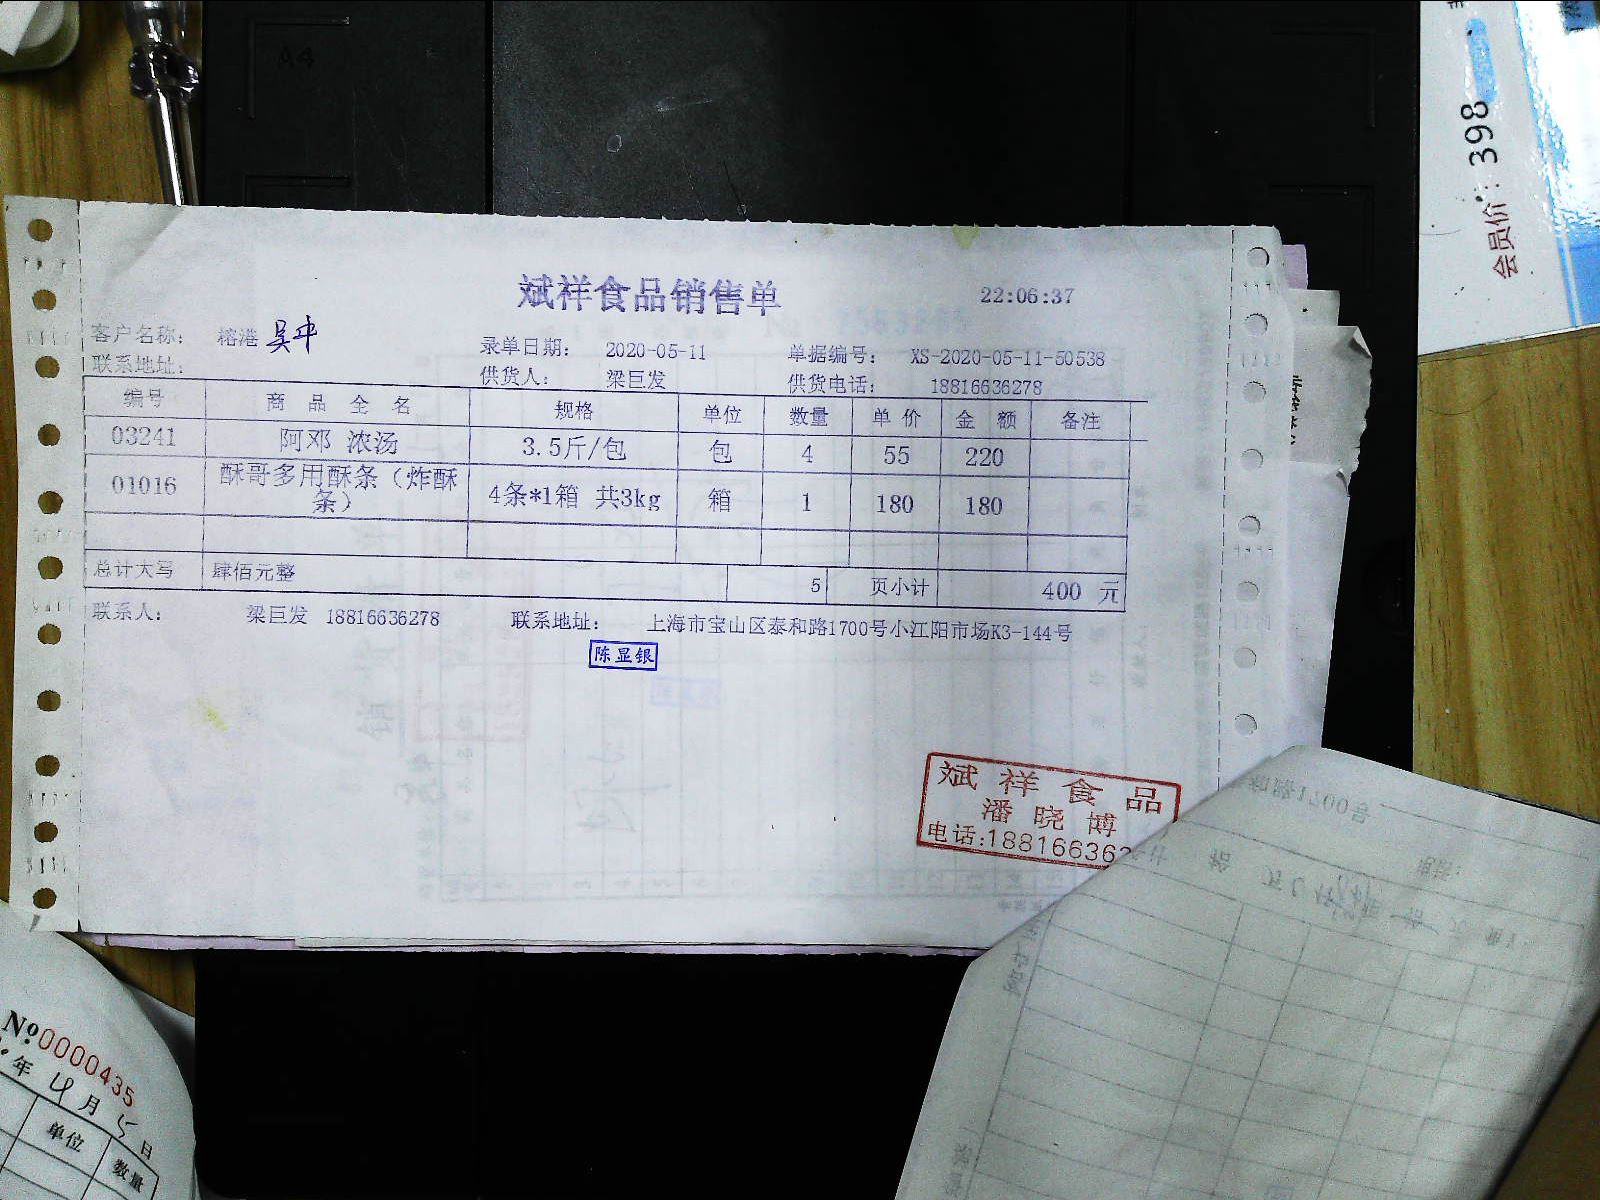 会员价：398
斌祥食品销售单 22:06:37
客户名称： 榕港
录单日期： 2020-05-11 单据编号： XS-2020-05-11-50538
联系地址：
供货人： 梁巨发 供货电话： 18816636278
编号 商品全名 规格 单位 数量 单价 金额 备注
03241 阿邓 浓汤 3.5斤/包 包 4 55 220
01016 酥哥多用酥条（炸酥条） 4条*1箱 共3kg 箱 1 180 180
总计大写 肆佰元整 5 页小计 400 元
联系人： 梁巨发 18816636278 联系地址： 上海市宝山区泰和路1700号小江阳市场K3-144号
陈显银
斌祥食品
潘晓博
电话:188166362
№0000435
年 4 月 5 日
单位 数量